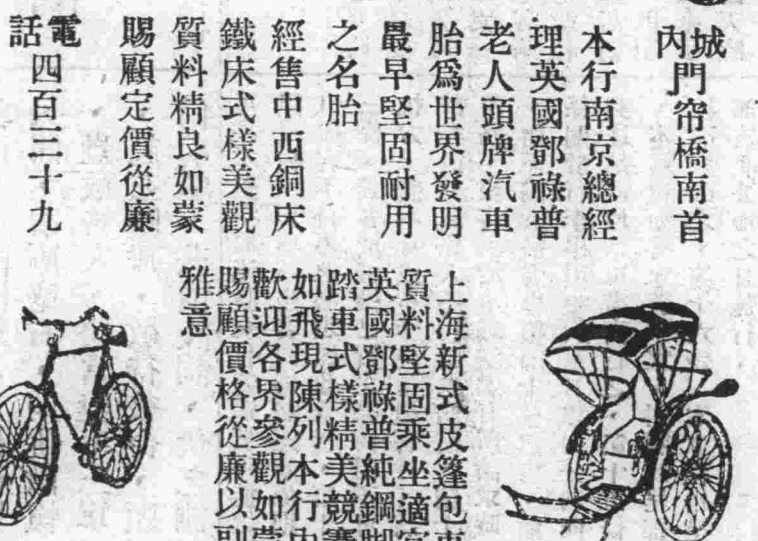 城內門帘橋南首
本行南京總經
理英國鄧祿普
老人頭牌汽車
胎爲世界發明
最早堅固耐用
之名胎
經售中西銅床
鐵床式樣美觀
質料精良如蒙
賜顧定價從廉
電話四百三十九
上海新式皮篷包車
質料堅固乘坐適宜
英國鄧祿普純鋼脚
踏車式樣精美競賽
如飛現陳列本行内
歡迎各界參觀如蒙
賜顧價格從廉以副
雅意